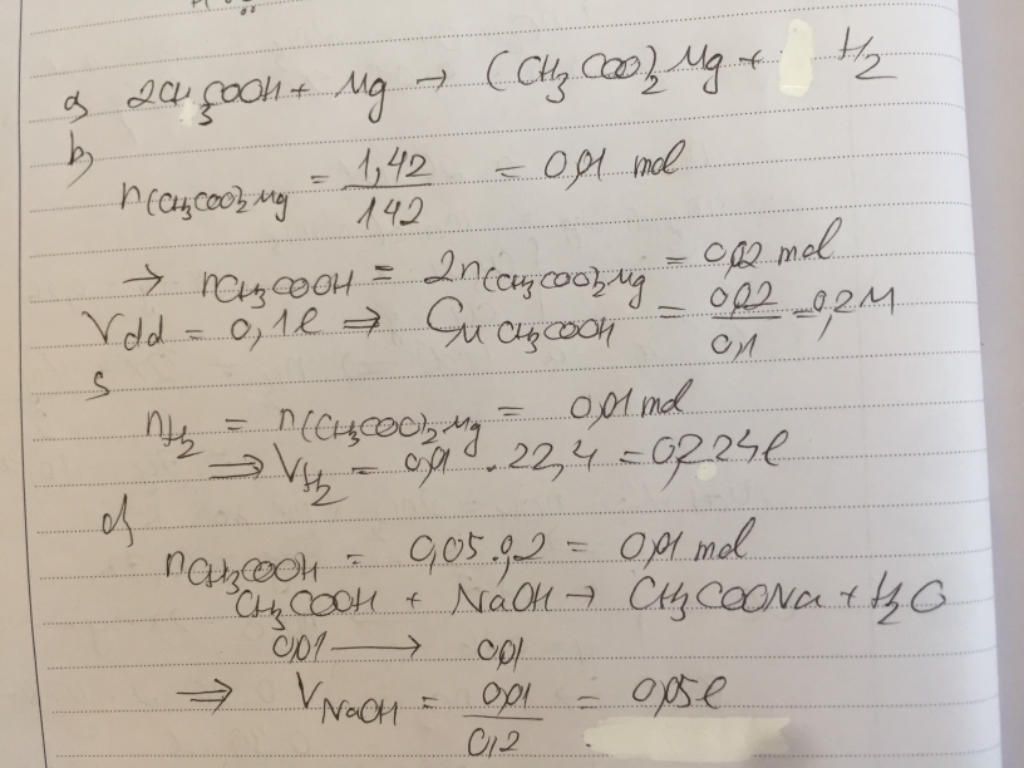 a) 2CH₃COOH + Mg → (CH₃COO)₂Mg + H₂
b)
n(CH₃COO)₂Mg = 1,42/142 = 0,01 mol
→ nCH₃COOH = 2n(CH₃COO)₂Mg = 0,02 mol
Vdd = 0,1l ⇒ CM CH₃COOH = 0,02/0,1 = 0,2M
c)
nH₂ = n(CH₃COO)₂Mg = 0,01 mol
⇒ VH₂ = 0,01 . 22,4 = 0,224l
d)
nCH₃COOH = 0,05.0,2 = 0,01 mol
CH₃COOH + NaOH → CH₃COONa + H₂O
0,01 → 0,01
⇒ VNaOH = 0,01/0,2 = 0,05l